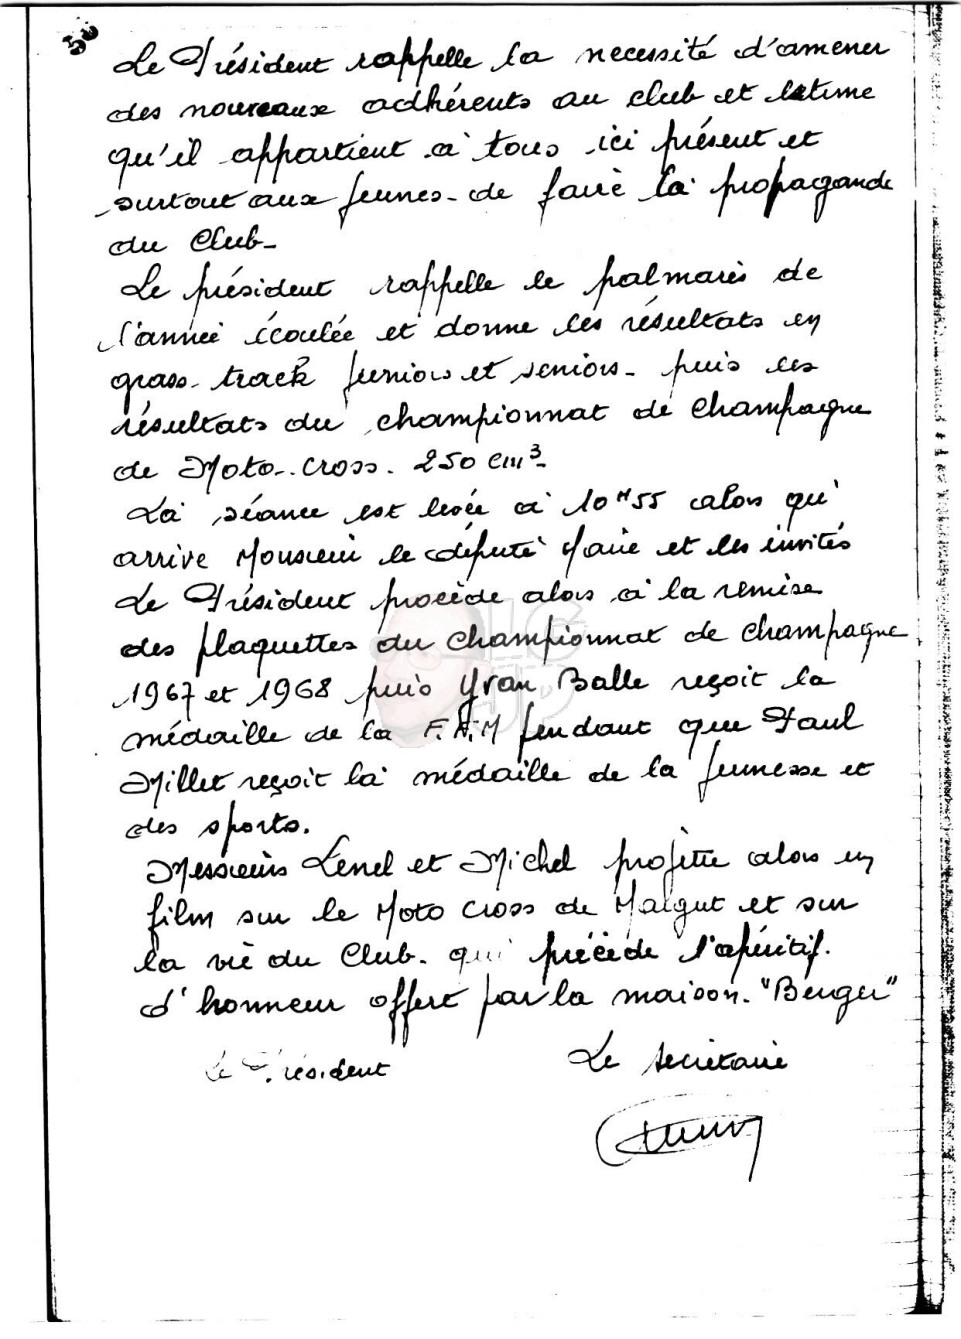 50
Le Président rappelle la necessité d'amener
des nouveaux adhérents au club et estime
qu'il appartient à tous ici présent et
surtout aux jeunes - de faire la propagande
du Club -
Le président rappelle le palmarès de
l'année écoulée et donne les résultats en
grass-track juniors et seniors - puis les
résultats du championnat de Champagne
de Moto-cross - 250 cm³ -
La séance est levée à 10H55 alors qu'
arrive Monsieur le député Maire et les invités
Le Président procède alors à la remise
des plaquettes du championnat de champagne
1967 et 1968 puis Yvan Balle reçoit la
médaille de la F.F.M pendant que Paul
Millet reçoit la médaille de la jeunesse et
des sports.
Messieurs Lenel et Michel projette alors un
film sur le Moto Cross de Malgut et sur
la vie du Club - qui précède l'apéritif.
d'honneur offert par la maison - "Berger"
Le Président Le Secrétaire